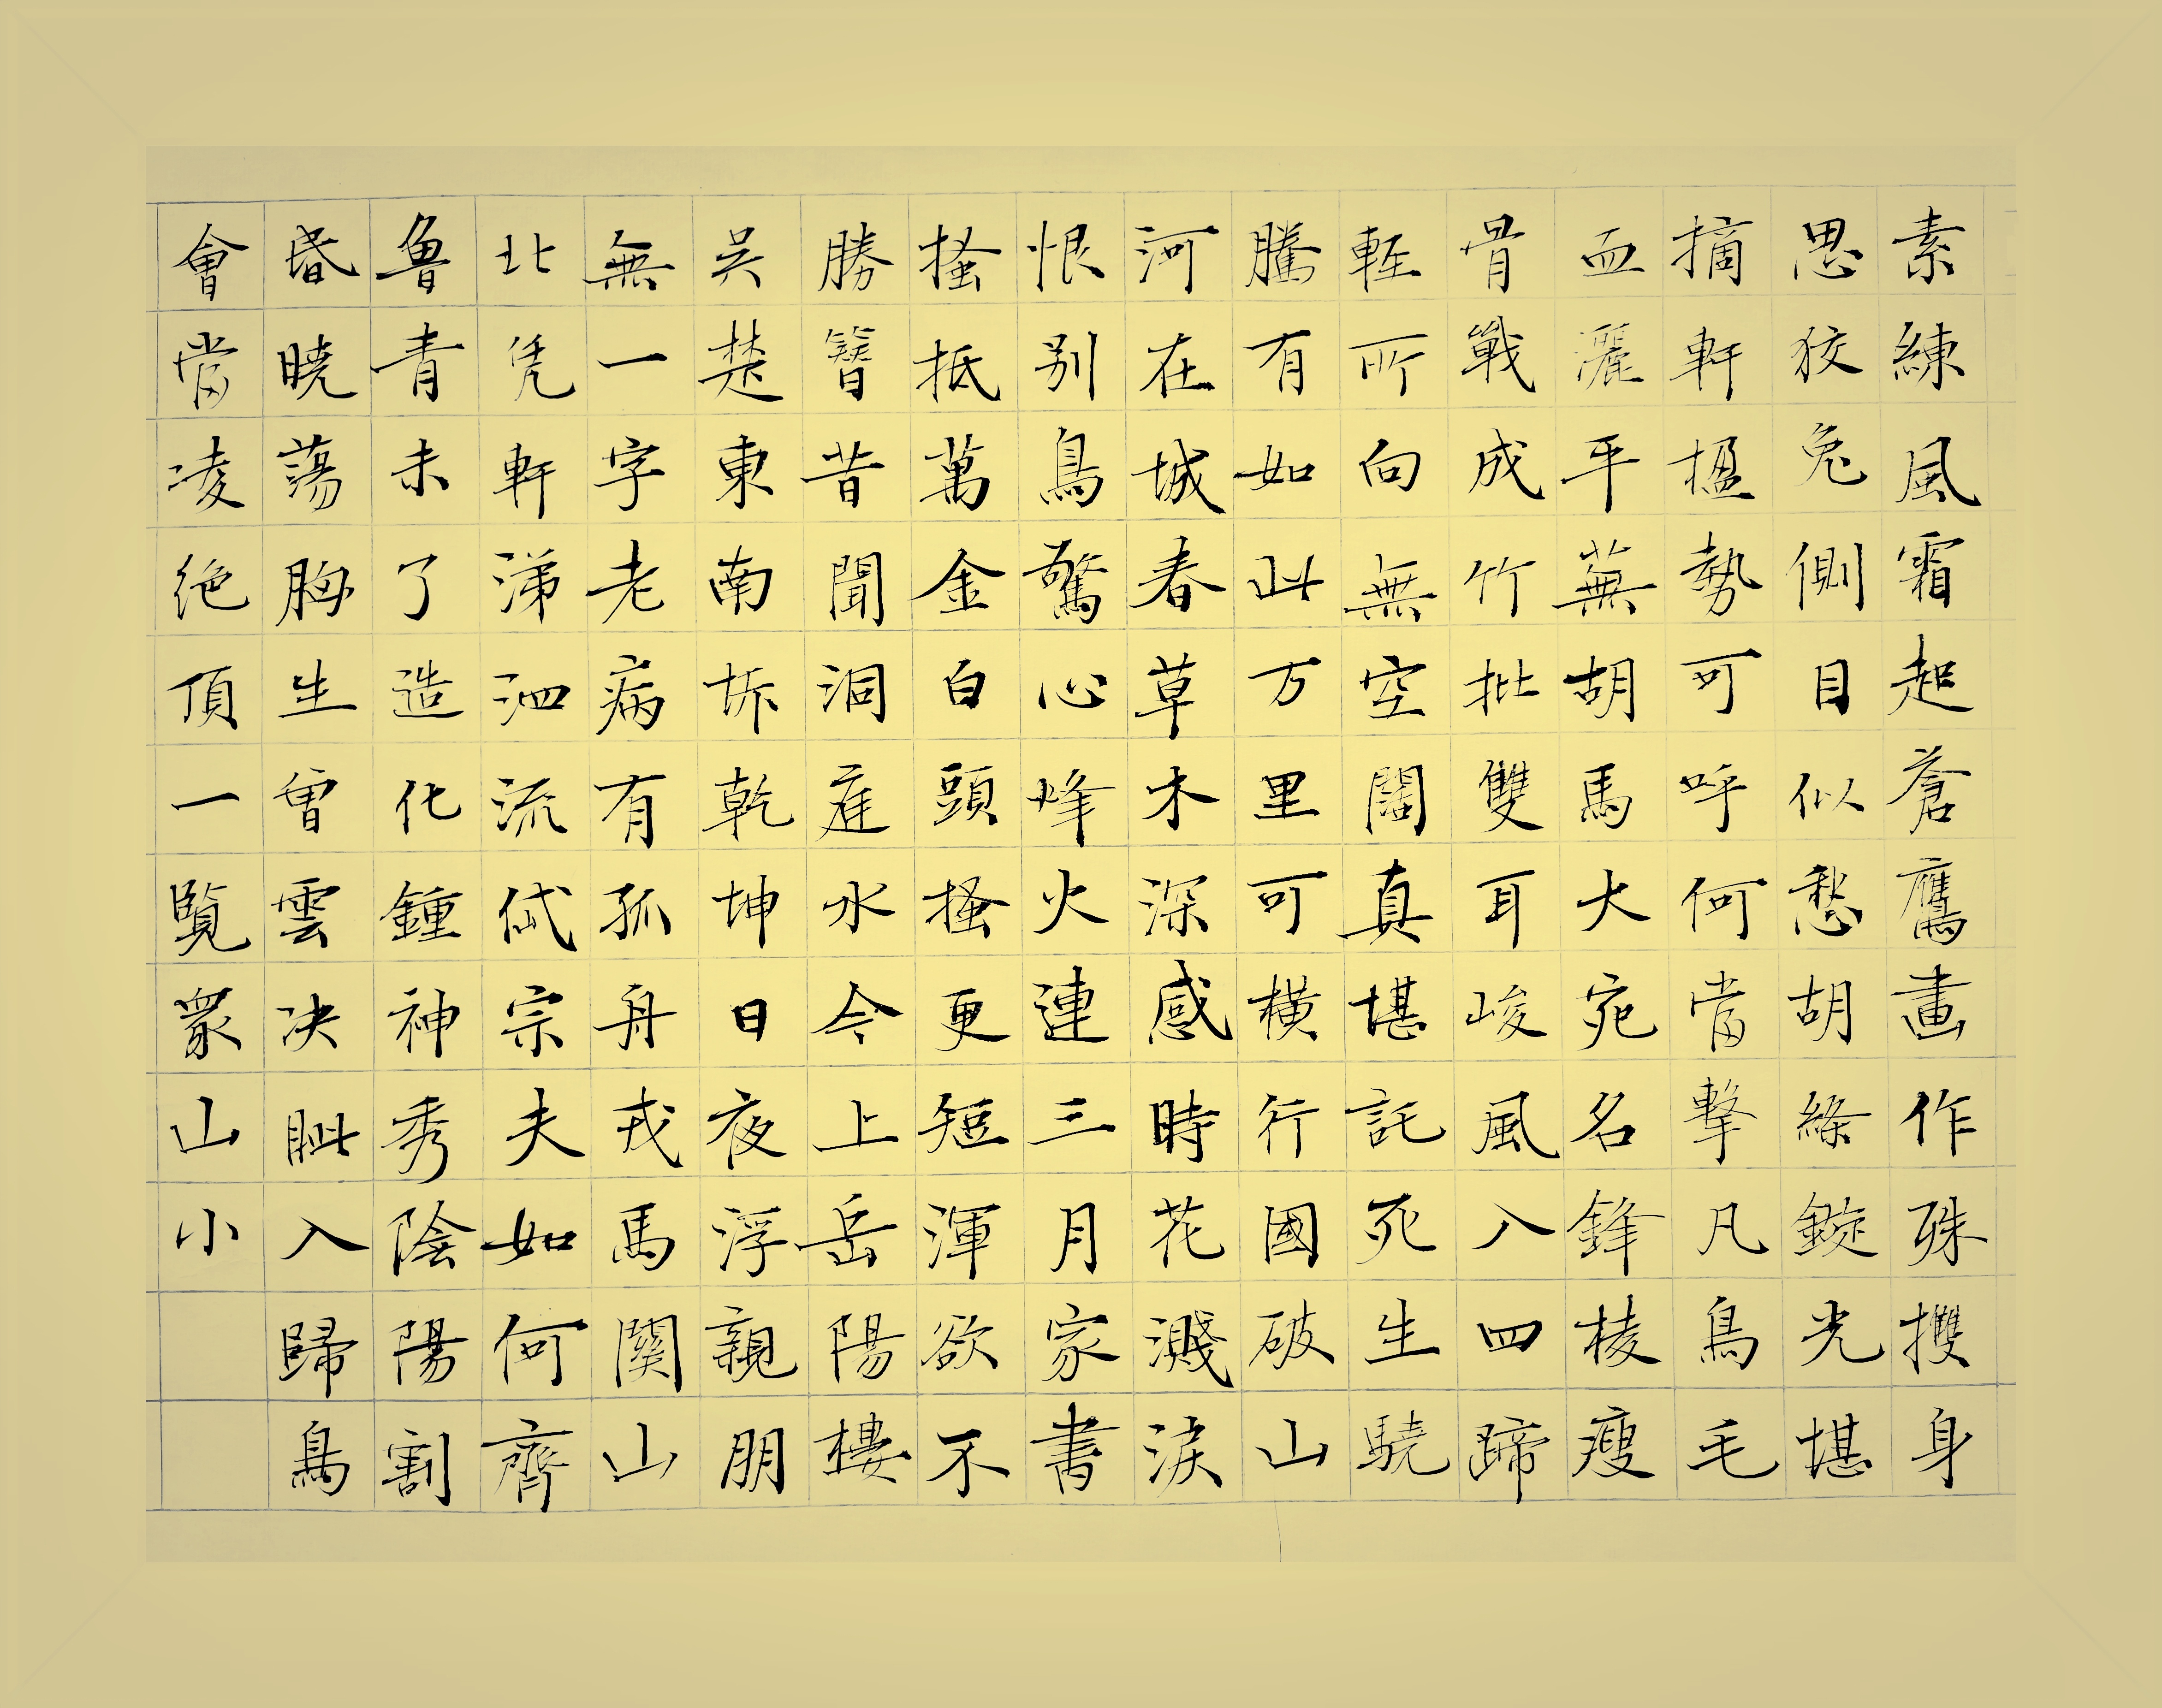 素練風霜起蒼鷹畫作殊㩳身
思狡兔側目似愁胡絛鏇光堪
摘軒楹勢可呼何當擊凡鳥毛
血灑平蕪胡馬大宛名鋒棱瘦
骨戰成竹批雙耳峻風入四蹄
輕所向無空闊真堪託死生驍
騰有如此万里可橫行國破山
河在城春草木深感時花濺淚
恨别鳥驚心烽火連三月家書
搔抵萬金白頭搔更短渾欲不
勝簪昔聞洞庭水今上岳陽樓
吳楚東南坼乾坤日夜浮親朋
無一字老病有孤舟戎馬關山
北凭軒涕泗流岱宗夫如何齊
魯青未了造化鍾神秀陰陽割
昏曉蕩胸生曾雲决眥入歸鳥
會當凌絕頂一覽眾山小